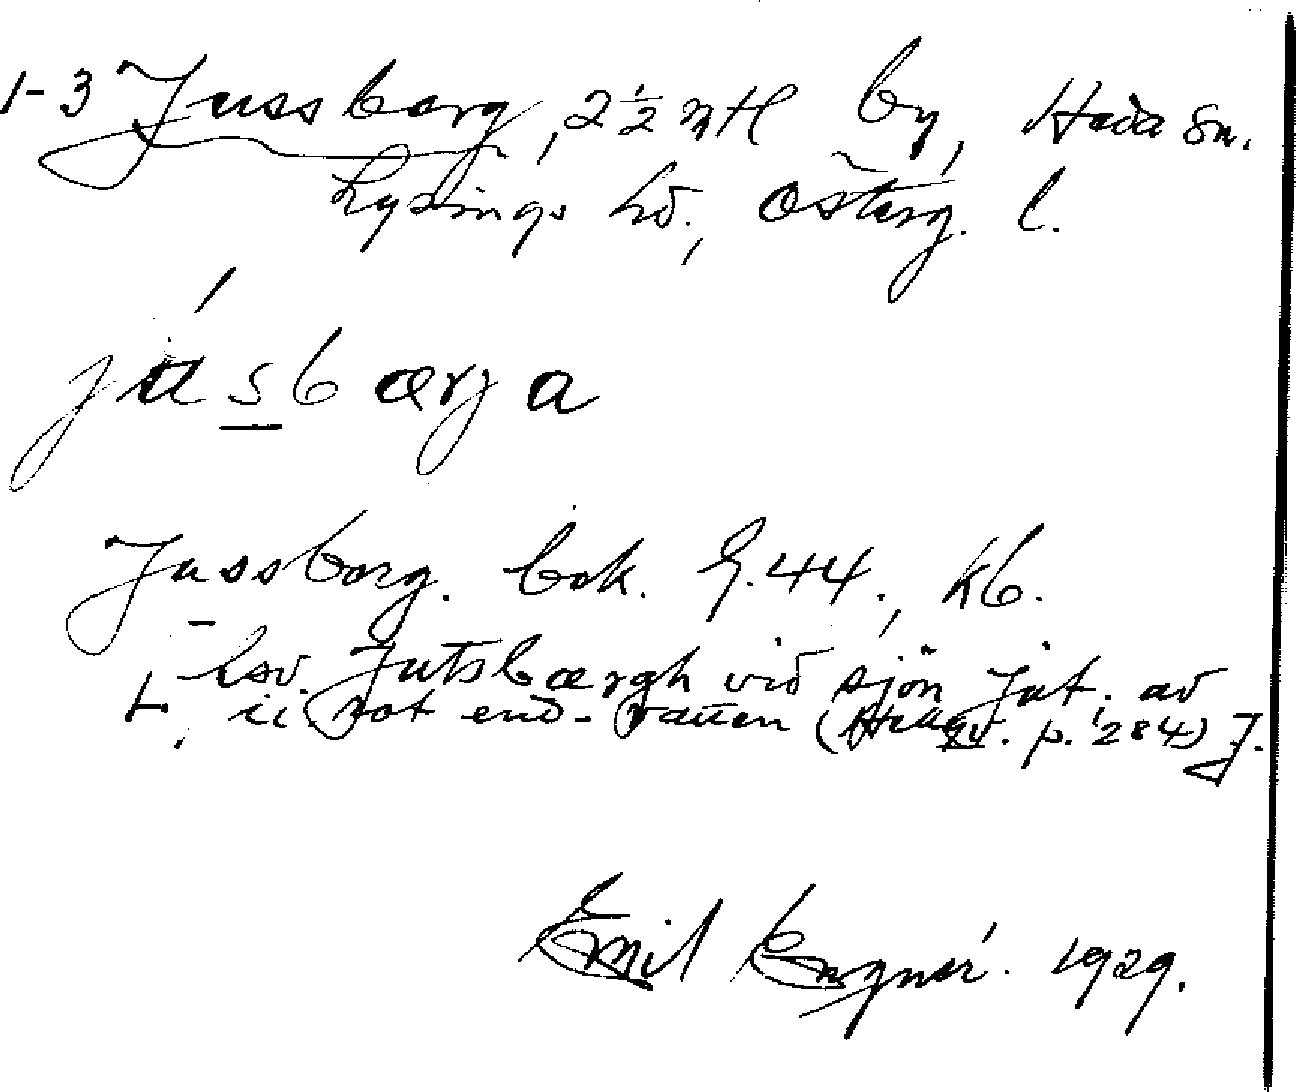 1-3 Jussberg, 2½ mtl by, Heda sn.
Lysings hd., Österg. l.
júsbærja
Jussborg. bok. G.44., kb.
fsv. Jutsbærgh vid sjön Jut, av
rot eud- vatten (Hellqv. p. 284) J.
Emil Engnér. 1929.